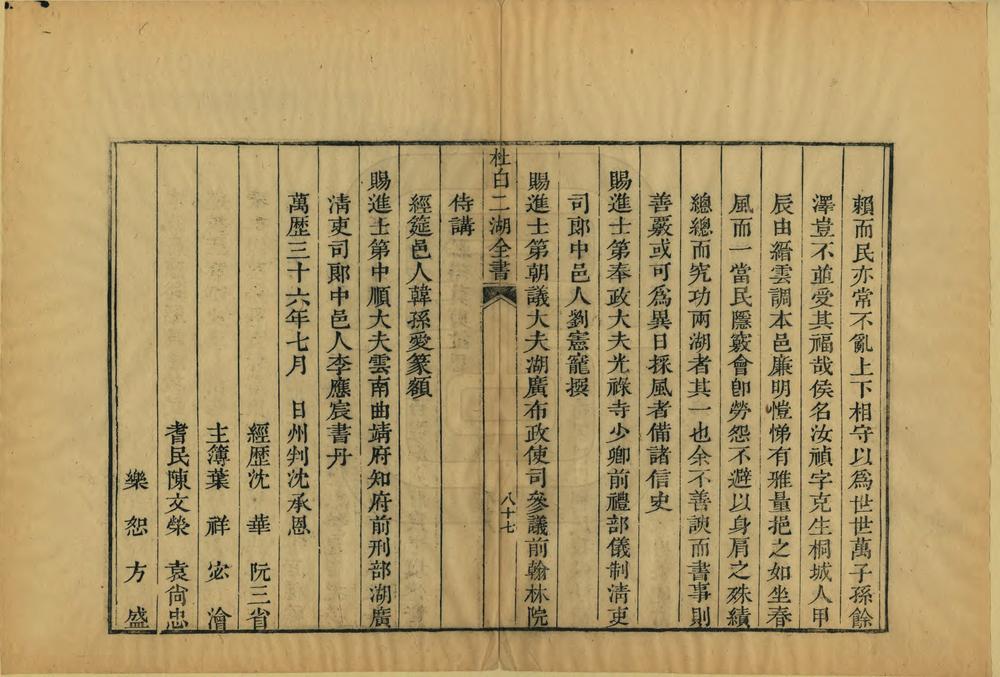 賴而民亦常不亂上下相守以爲世世萬子孫餘
澤豈不並受其福哉侯名汝禎字克生桐城人甲
辰由縉雲調本邑廉明愷悌有雅量挹之如坐春
風而一當民隱竅會卽勞怨不避以身肩之殊績
總總而究功兩湖者其一也余不善諛而書事則
善覈或可爲異日採風者備諸信史
賜進士第奉政大夫光祿寺少卿前禮部儀制清吏
司郎中邑人劉憲寵撰
賜進士第朝議大夫湖廣布政使司參議前翰林院
杜白二湖全書
八十七
侍講
經筵邑人韓孫愛篆額
賜進士第中順大夫雲南曲靖府知府前刑部湖廣
清吏司郎中邑人李應宸書丹
萬歷三十六年七月 日州判沈承恩
經歷沈 華 阮三省
主簿葉 祥 宓 澮
耆民陳文榮 袁尙忠
樂 恕 方 盛